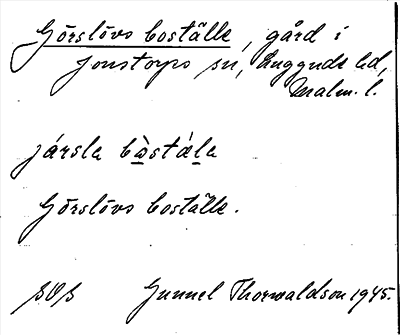 Görslövs boställe, gård i
Jonstorps sn, Luggude hd,
Malm. l.
jársla bo̱̊̀stǽḻa
Görslövs boställe.
Gunnel Thorwaldson 1945.